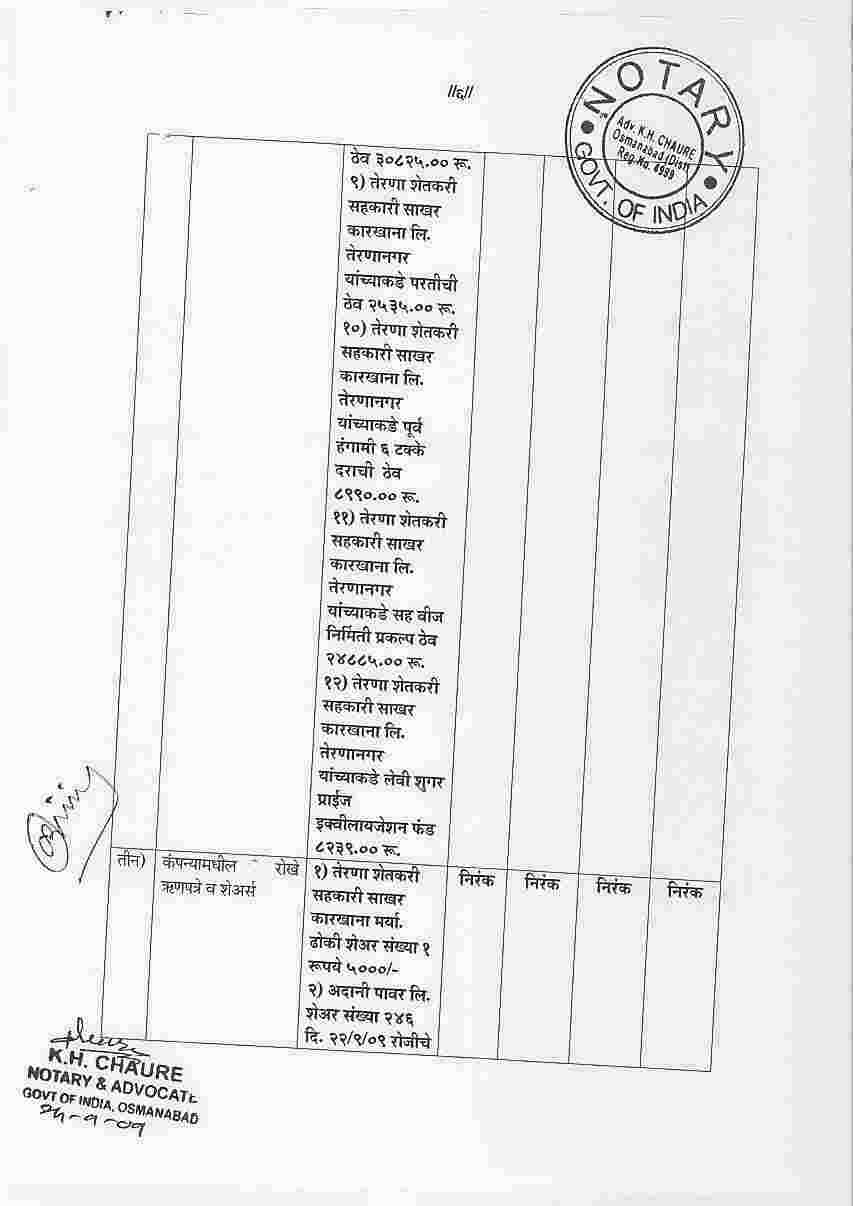 //६//
NOTARY
GOVT. OF INDIA
Adv. K.H. CHAURE
Osmanabad (Dist)
Reg.No. 6999
ठेव ३०८२५.०० रू.
९) तेरणा शेतकरी
सहकारी साखर
कारखाना लि.
तेरणानगर
यांच्याकडे परतीची
ठेव २५३५.०० रू.
१०) तेरणा शेतकरी
सहकारी साखर
कारखाना लि.
तेरणानगर
यांच्याकडे पूर्व
हंगामी ६ टक्के
दराची ठेव
८९९०.०० रू.
११) तेरणा शेतकरी
सहकारी साखर
कारखाना लि.
तेरणानगर
यांच्याकडे सह वीज
निर्मिती प्रकल्प ठेव
२४८८५.०० रू.
१२) तेरणा शेतकरी
सहकारी साखर
कारखाना लि.
तेरणानगर
यांच्याकडे लेवी शुगर
प्राईज
इक्वीलायजेशन फंड
८२३९.०० रू.
तीन) कंपन्यामधील रोखे
ऋणपत्रे व शेअर्स
१) तेरणा शेतकरी
सहकारी साखर
कारखाना मर्या.
ढोकी शेअर संख्या १
रूपये ५०००/-
२) अदानी पावर लि.
शेअर संख्या २४६
दि. २२/९/०९ रोजीचे
निरंक निरंक निरंक निरंक
K.H. CHAURE
NOTARY & ADVOCATE
GOVT OF INDIA, OSMANABAD